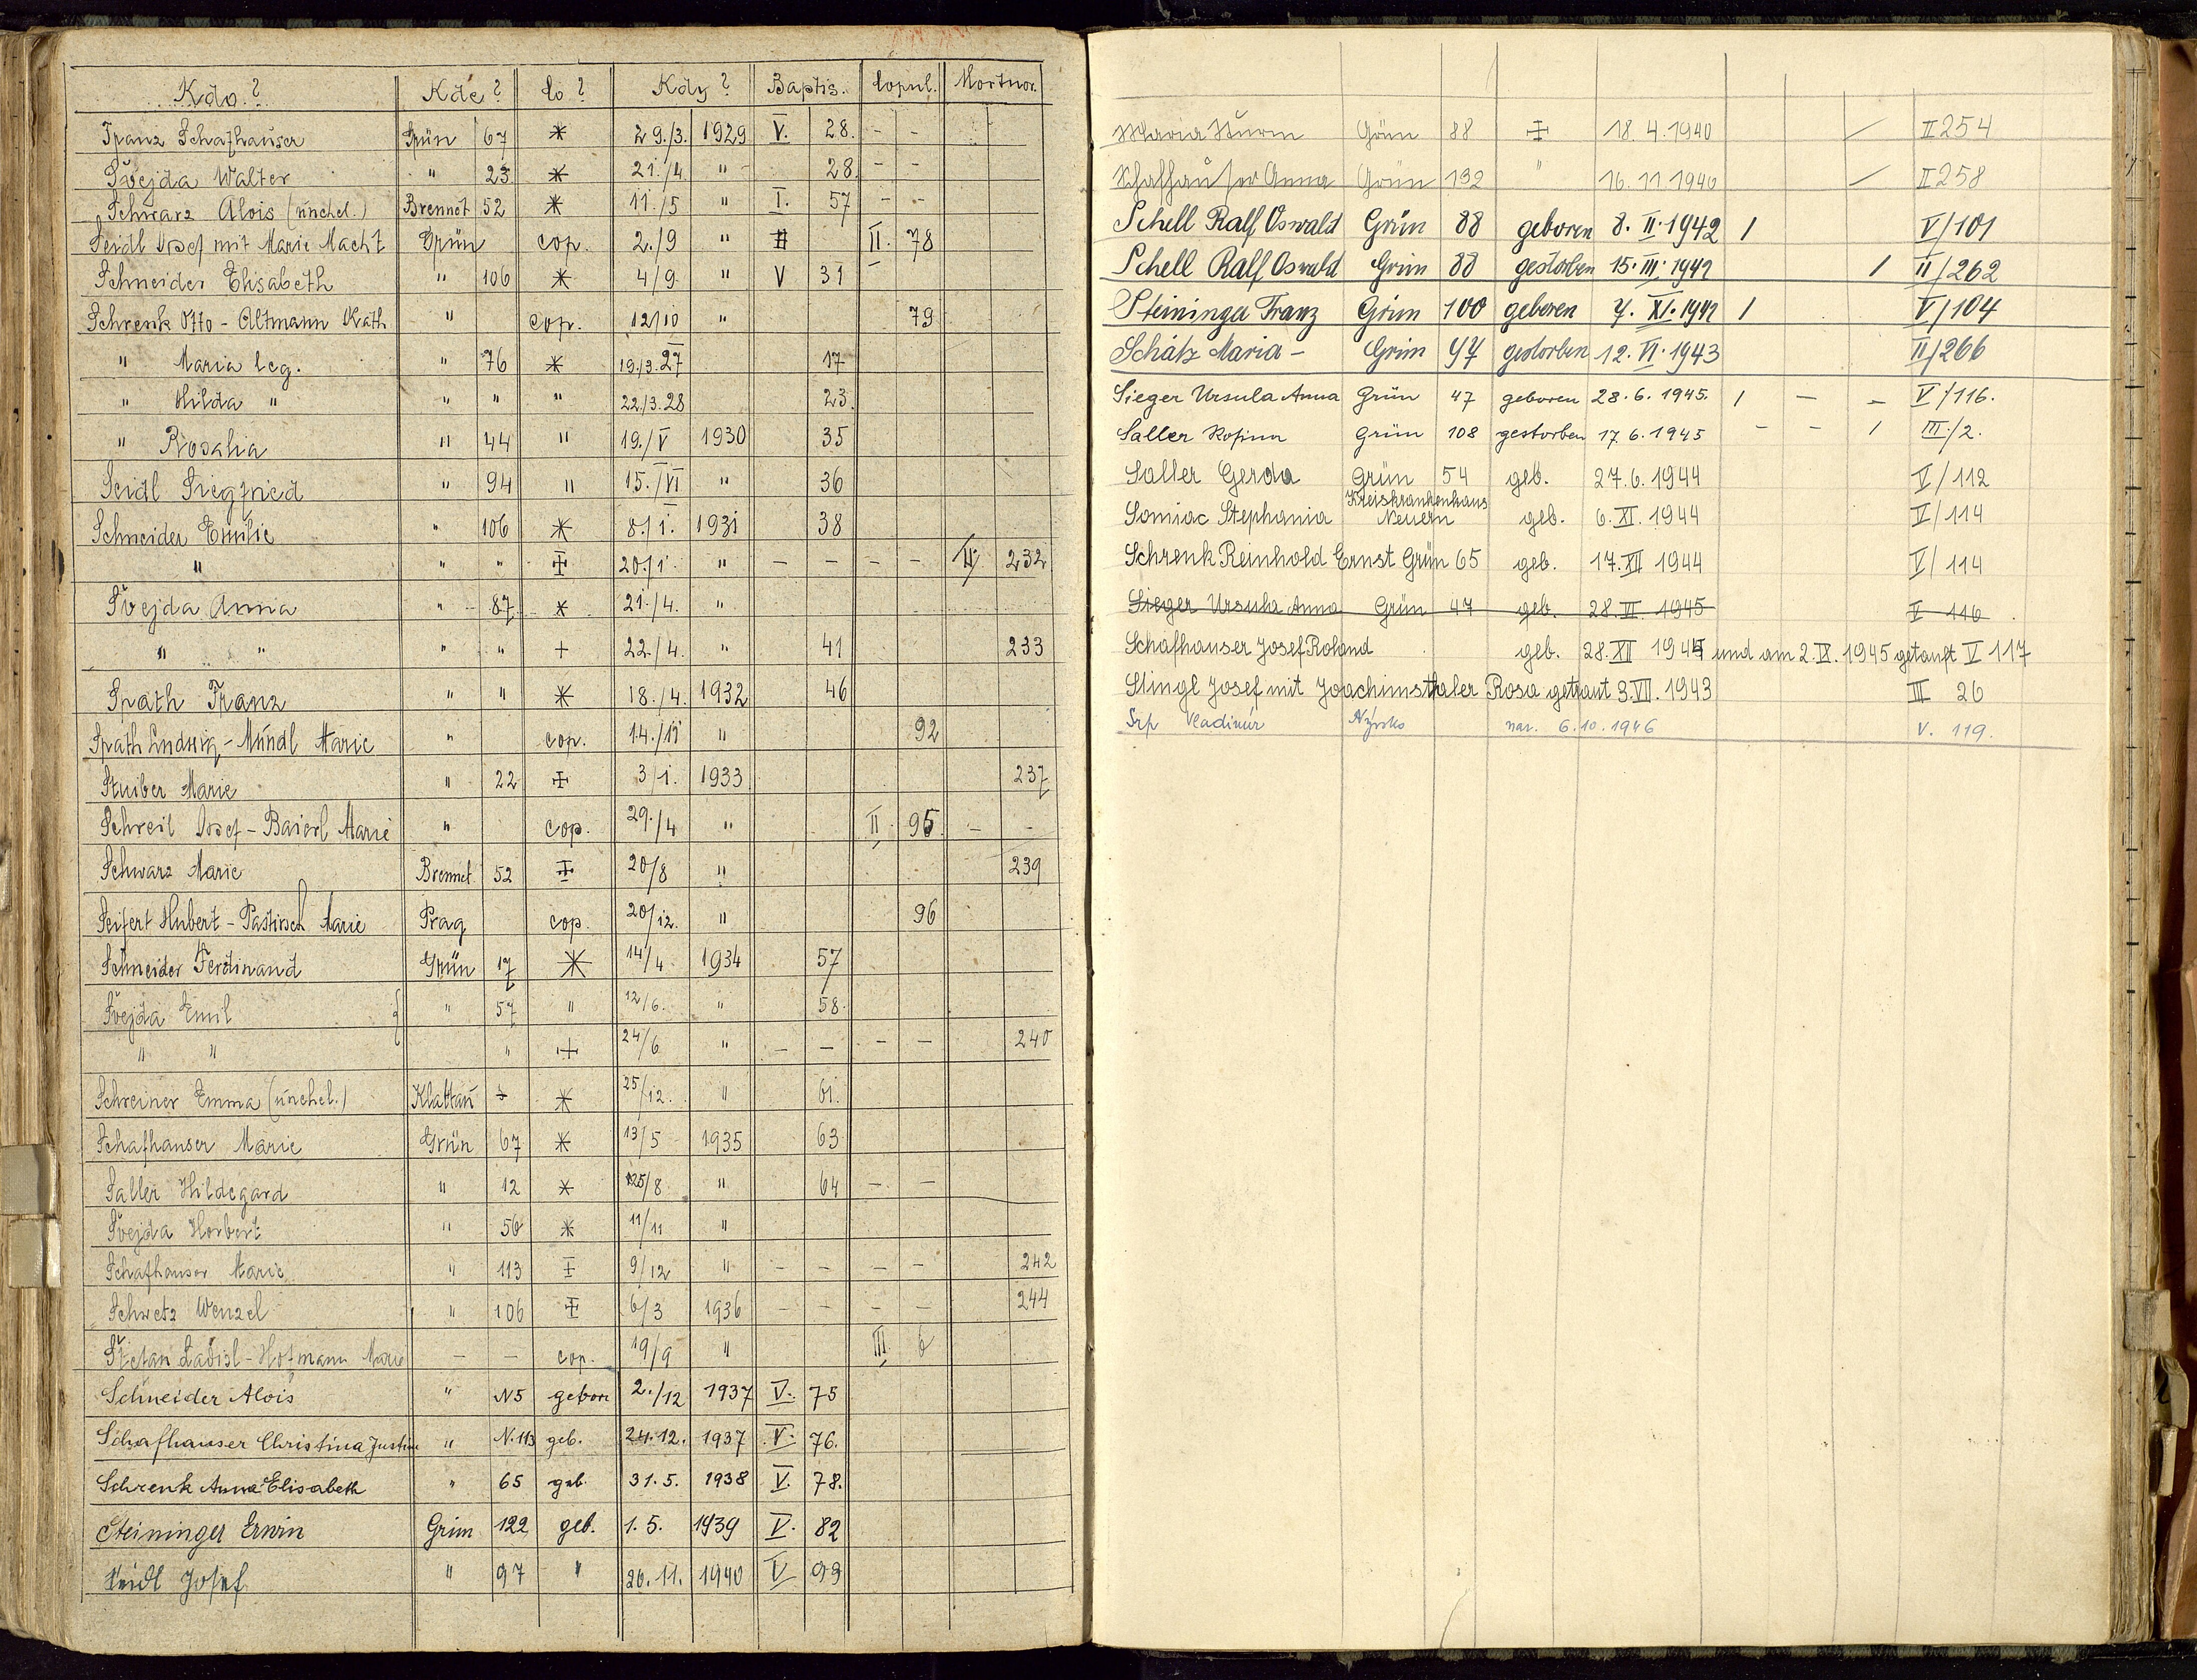 Kdo? Kde? Co? Kdy? Baptis. Copul. Mortuor.
Franz Schafhauser Grün 67 * 29./3. 1929 V. 28. - -
Švejda Walter " 23 * 21./4. " 28. - -
Schwarz Alois (unehel.) Brennet 52 * 11./5 " I. 57 - -
Seidl Josef mit Marie Macht Grün cop. 2./9 " II. 78
Schneider Elisabeth " 106 * 4/9. " V 31
Schrenk Otto - Altmann Kath " cop. 12/10 " 79
" Maria leg. " 76 * 19./3. 27 17
" Hilda " " " " 22./3. 28 23.
" Rosalia " 44 " 19./V 1930 35
Seidl Siegfried " 94 " 15./VI " 36
Schneider Emilie " 106 * 8./I. 1931 38
" " " ‡ 20./1. " - - - - II 232
Švejda Anna " 87 * 21./4. "
" " " " + 22./4. " 41 233
Spath Franz " " * 18./4. 1932 46
Spath Ludwig - Mündl Marie " cop. 14./11 " 92
Stuiber Marie " 22 ‡ 3/1. 1933 237
Schreil Josef - Baierl Marie " cop. 29./4 " II. 95 - -
Schwarz Marie Brennet 52 ‡ 20/8 " 239
Seifert Hubert - Pastirsch Marie Prag cop. 20/12. " 96
Schneider Ferdinand Grün 17 * 14/4. 1934 57
Švejda Emil { " 57 " 12/6. " 58.
" " " + 24/6 " - - - - 240
Schreiner Emma (unehel.) Klattau * 25/12. " 61.
Schafhauser Marie Grün 67 * 13/5 1935 63
Saller Hildegard " 12 * 25/8 " 64 - -
Švejda Horbert " 56 * 11/11 "
Schafhauser Marie " 113 ‡ 9/12 " - - - - 242
Schwetz Wenzel " 106 ‡ 6/3 1936 - - - - 244
Ladisl - Hofmann Marie - - cop. 19/9 " III. 6
Schneider Alois " N5 gebore 2./12 1937 V. 75
Schafhauser Christina Justine " N.113 geb. 24.12. 1937 V. 76.
Schrenk Anna Elisabeth " 65 geb. 31.5. 1938 V. 78.
Steininger Erwin Grün 122 geb. 1.5. 1939 V. 82
Seidl Josef " 97 " 20.11. 1940 V 93
Maria Sturm Grün 88 ‡ 18.4.1940 / II 254
Schafhauser Anna Grün 132 " 16.11.1940 / II 258
Schell Ralf Oswald Grün 88 geboren 8.II.1942 / V/101
Schell Ralf Oswald Grün 88 gestorben 15.III.1942 / II/262
Steininger Franz Grün 100 geboren 7.XI.1942 / V/104
Schätz Maria - Grün 47 gestorben 12.VI.1943 II/266
Sieger Ursula Anna Grün 47 geboren 28.6.1945. / - - V/116.
Saller Rosina Grün 108 gestorben 17.6.1945 - - / III/2.
Saller Gerda Grün 54 geb. 27.6.1944 V/112
Somiac Stephania Kreiskrankenhaus Neuern geb. 6.XI.1944 V/114
Schrenk Reinhold Ernst Grün 65 geb. 17.XII 1944 V/114
Sieger Ursula Anna Grün 47 geb. 28.VI.1945 V 116
Schafhauser Josef Roland geb. 28.XII 1944 und am 2.IX.1945 getauft V 117
Stingl Josef mit Joachimsthaler Rosa getraut 3.VII.1943 III 26
Srp Vladimír Nýrsko nar. 6.10.1946 V. 119.